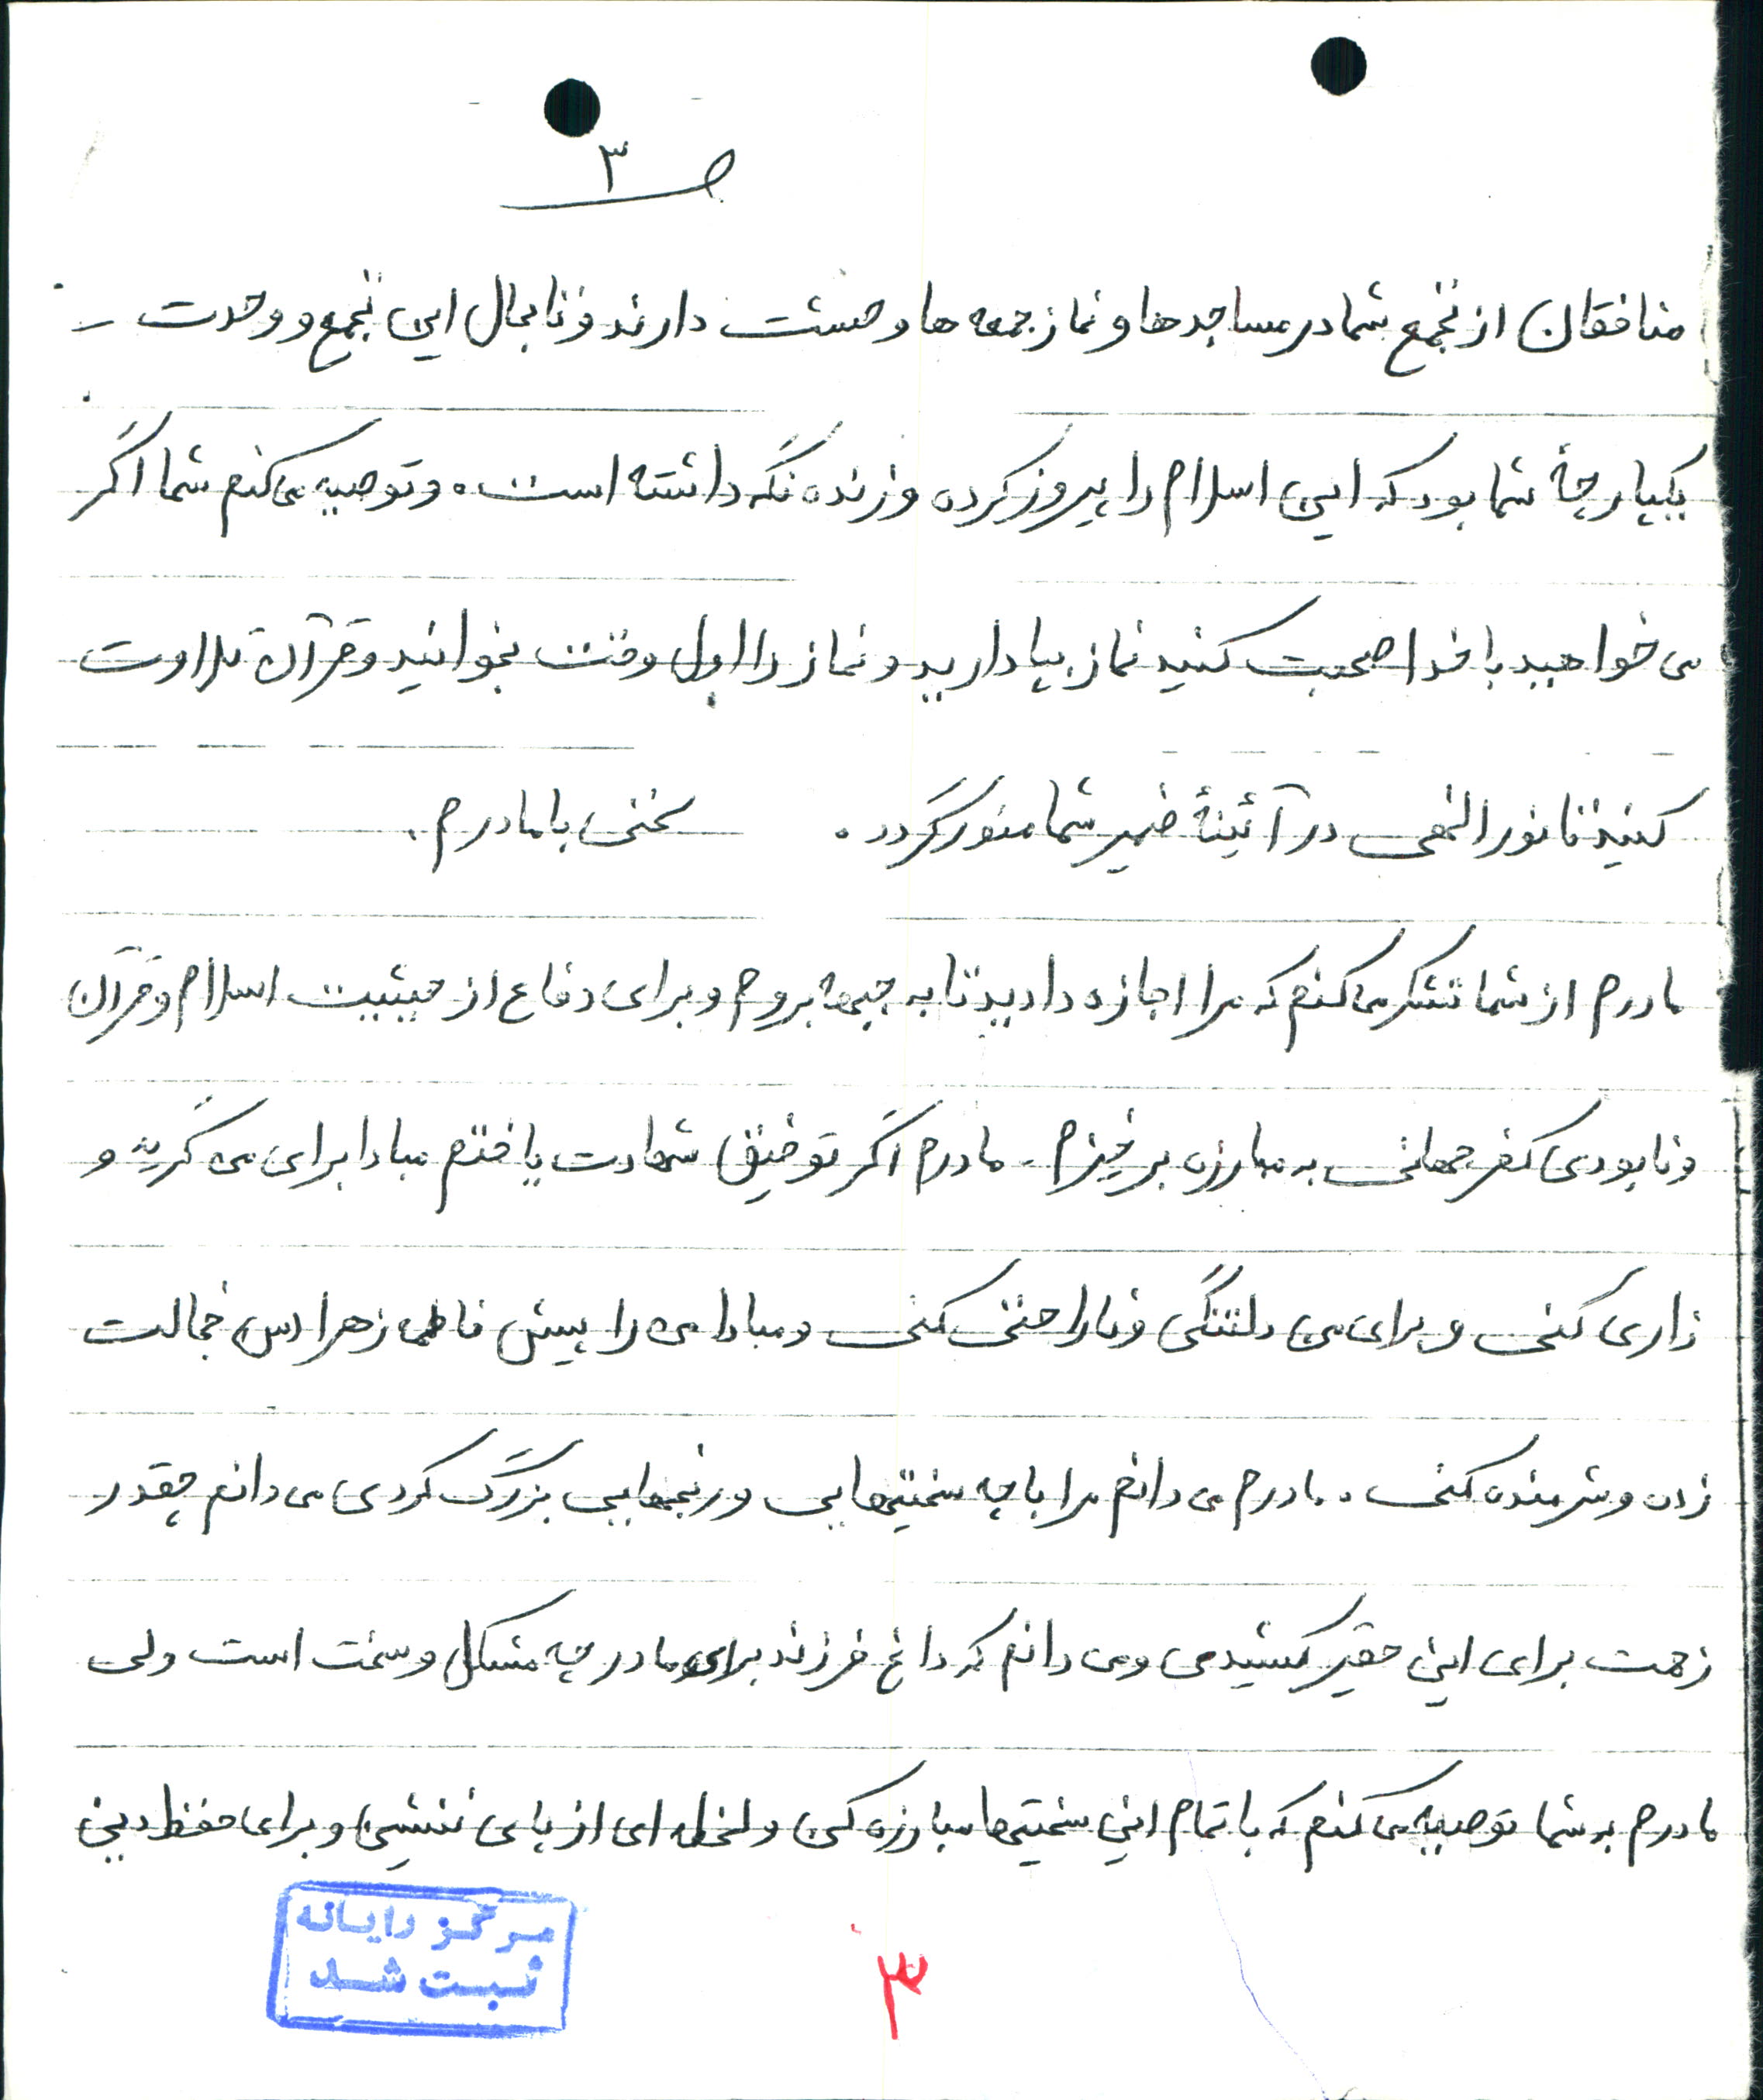 ص ۳
منافقان از تجمع شما در مساجدها و نماز جمعه ها وحشت دارند و تا بحال این تجمع و وحدت
یکپارچهٔ شما بود که این اسلام را پیروز کرده و زنده نگه داشته است. و توصیه می کنم شما اگر
می خواهید با خدا صحبت کنید نماز بپا دارید و نماز را اول وقت بخوانید و قرآن تلاوت
کنید تا نور الهی در آئینهٔ ضمیر شما منور گردد. سخنی با مادرم.
مادرم از شما تشکر می کنم که مرا اجازه دادید تا به جبهه بروم و برای دفاع از حیثیت اسلام و قرآن
و نابودی کفر جهانی به مبارزه برخیزم. مادرم اگر توفیق شهادت یافتم مبادا برای من گریه و
زاری کنی و برای من دلتنگی و ناراحتی کنی و مبادا من را پیش فاطمه زهرا (س) خجالت
زده و شرمنده کنی. مادرم می دانم مرا با چه سختیهایی و رنجهایی بزرگ کردی می دانم چقدر
زحمت برای این حقیر کشیدی و می دانم که داغ فرزند برای مادر چه مشکل و سخت است ولی
مادرم به شما توصیه می کنم که با تمام این سختیها مبارزه کن و لحظه ای از پای ننشین و برای حفظ دین
مرکز رایانه
ثبت شد
۳